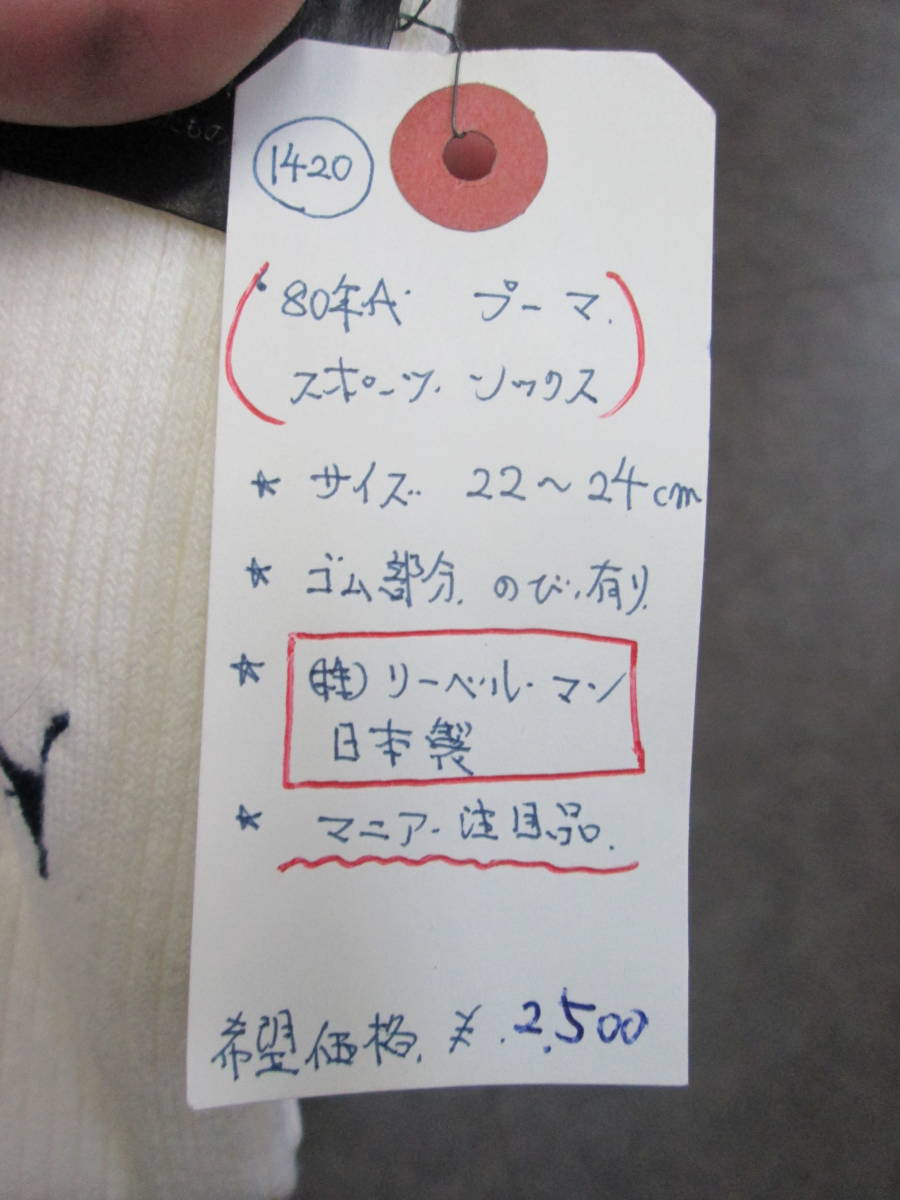 1420
80年A プーマ.
スポーツ. ソックス
★ サイズ. 22〜24cm
★ ゴム部分. のび.有り.
★ (株)リーベル・マン
日本製
★ マニア・注目品.
希望価格. ¥.2,500